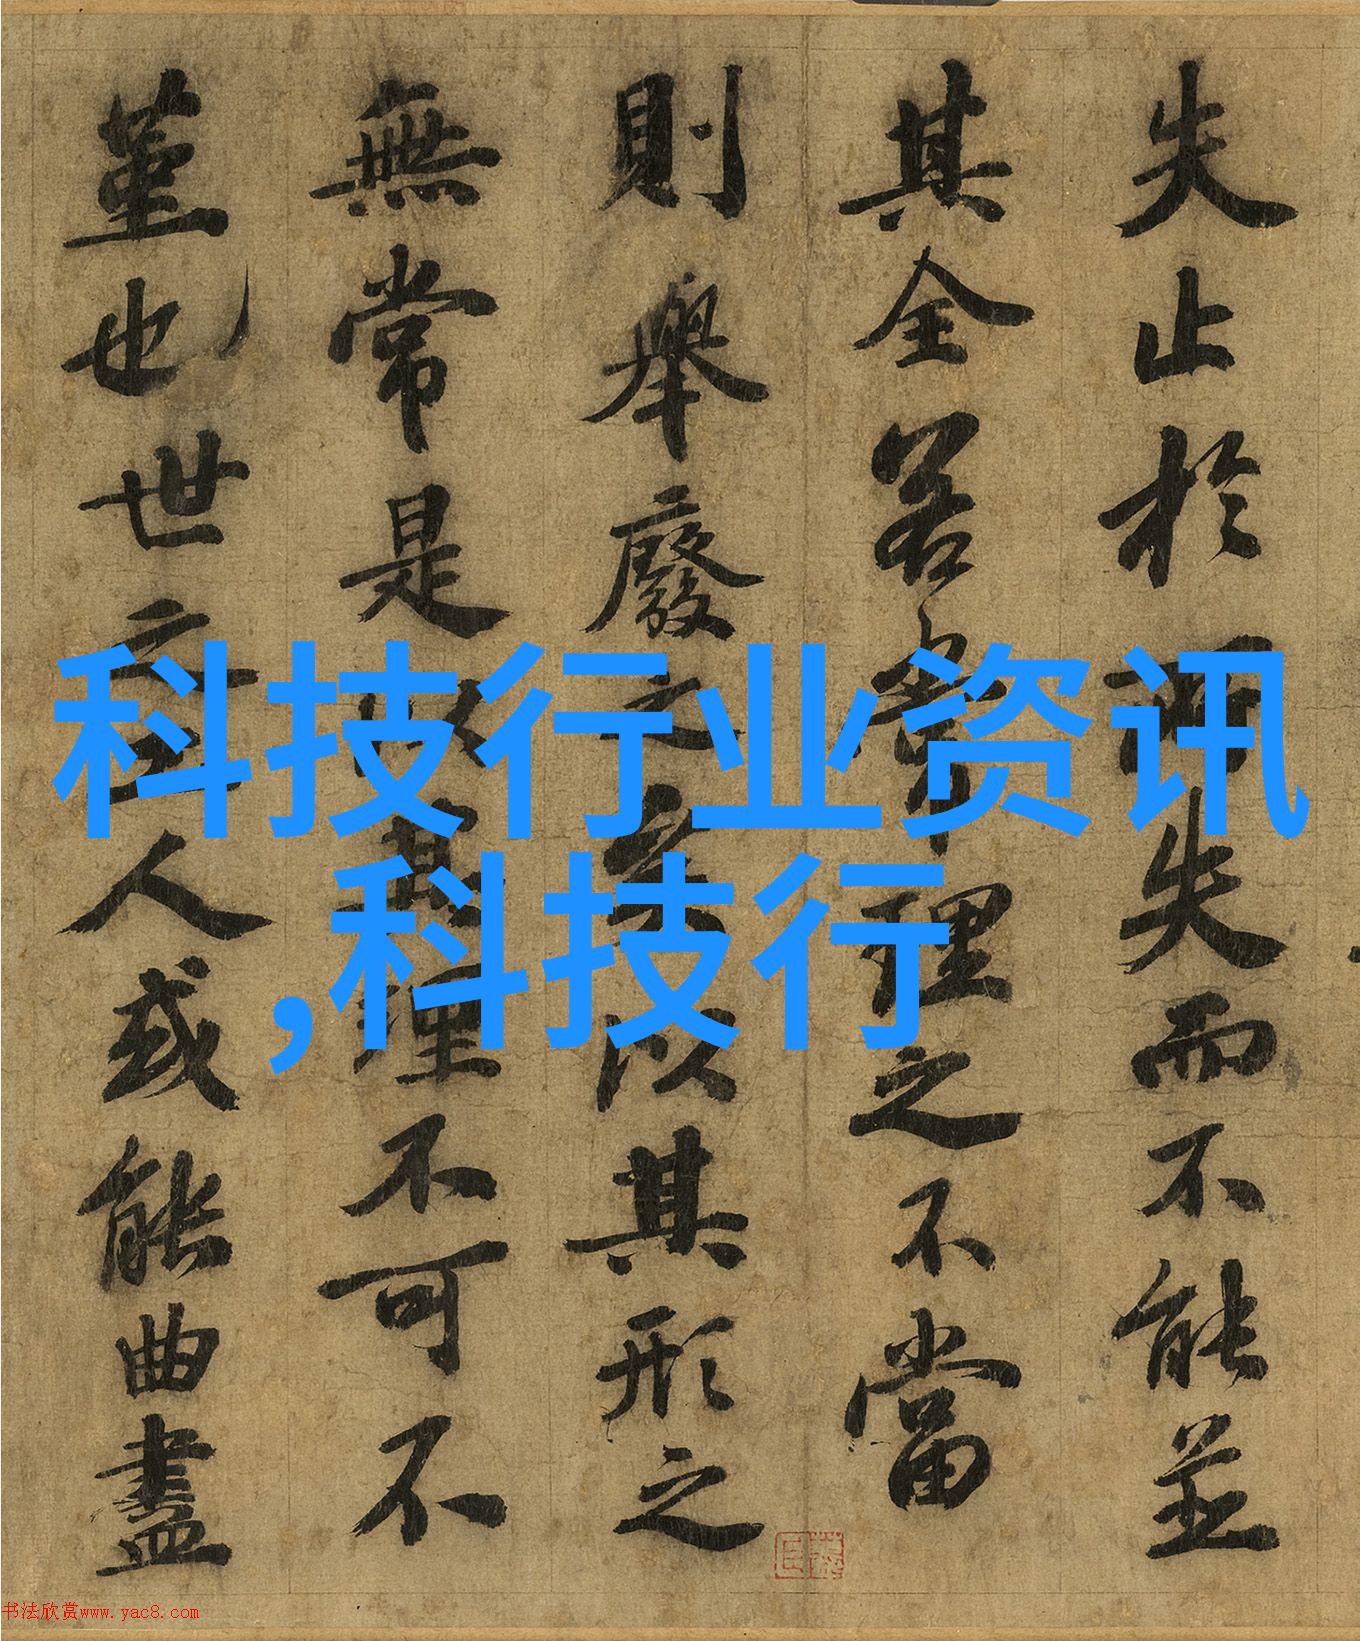 失止於所失而不能並
其全若常理之不當
則舉廢之矣以其形之
無常是以其理不可不
堇也世之工人或能曲盡
科技行业资讯
,科技行
书法欣赏www.yac8.com